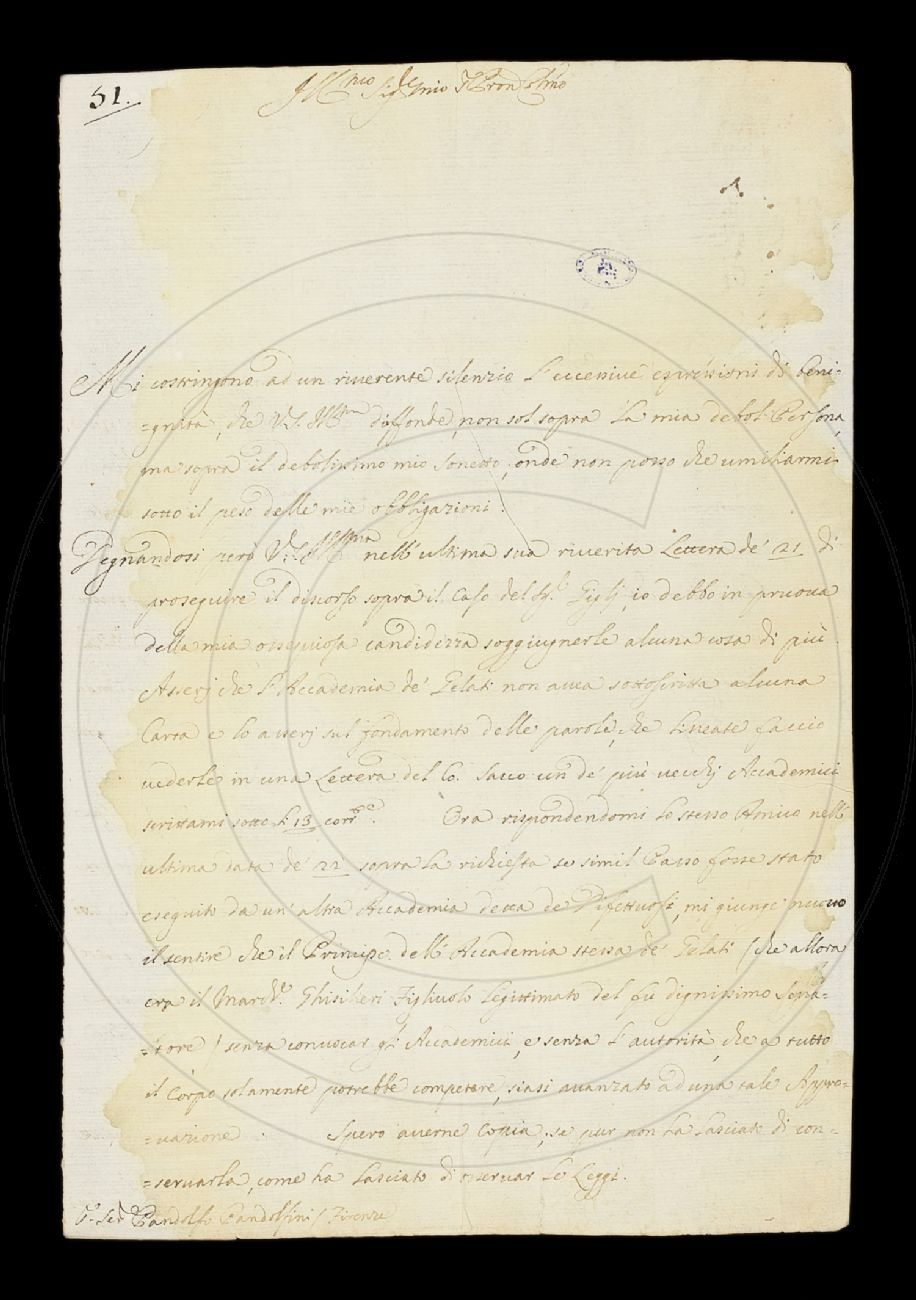 51.
Ill.mo Sig.re mio P.ron Col.mo
Mi costringono ad un riverente silenzio l'eccessive espressioni di beni-
=gnità, che V.S. Ill.ma diffonde, non sol sopra la mia debol Persona,
ma sopra il debolissimo mio sonetto, onde non posso che umiliarmi
sotto il peso delle mie obbligazioni.
Degnandosi però V.S. Ill.ma nell'ultima sua riverita Lettera de' 21. di
proseguire il discorso sopra il Caso del Sig.r Gigli, io debbo in pruova
della mia ossequiosa candidezza soggiugnerle alcuna cosa di più.
Asserj che l'Accademia de' Gelati non avea sottoscritta alcuna
Carta e lo asserj sul fondamento delle parole, che lineate faccio
vederle in una Lettera del Co. Sacco un de' più vecchj Accademici
scrittami sotto li 13 corr.e. Ora rispondendomi lo stesso Amico nell'
ultima data de' 22 sopra la richiesta se simil Passo fosse stato
eseguito da un'altra Accademia detta de' Difettuosi, mi giunge nuovo
il sentire che il Principe dell'Accademia stessa de' Gelati (che allora
era il March.e Ghisilieri Figliuolo legittimato del fu dignissimo Sena-
=tore) senza convocar gli Accademici, e senza l'autorità, che a tutto
il Corpo solamente potrebbe competere, siasi avanzato ad una tale Appro-
=vazione. Spero averne Copia, se pur non ha lasciato di con-
=servarla, come ha lasciato di osservar le Leggi.
Pandolfo Pandolfini / Firenze